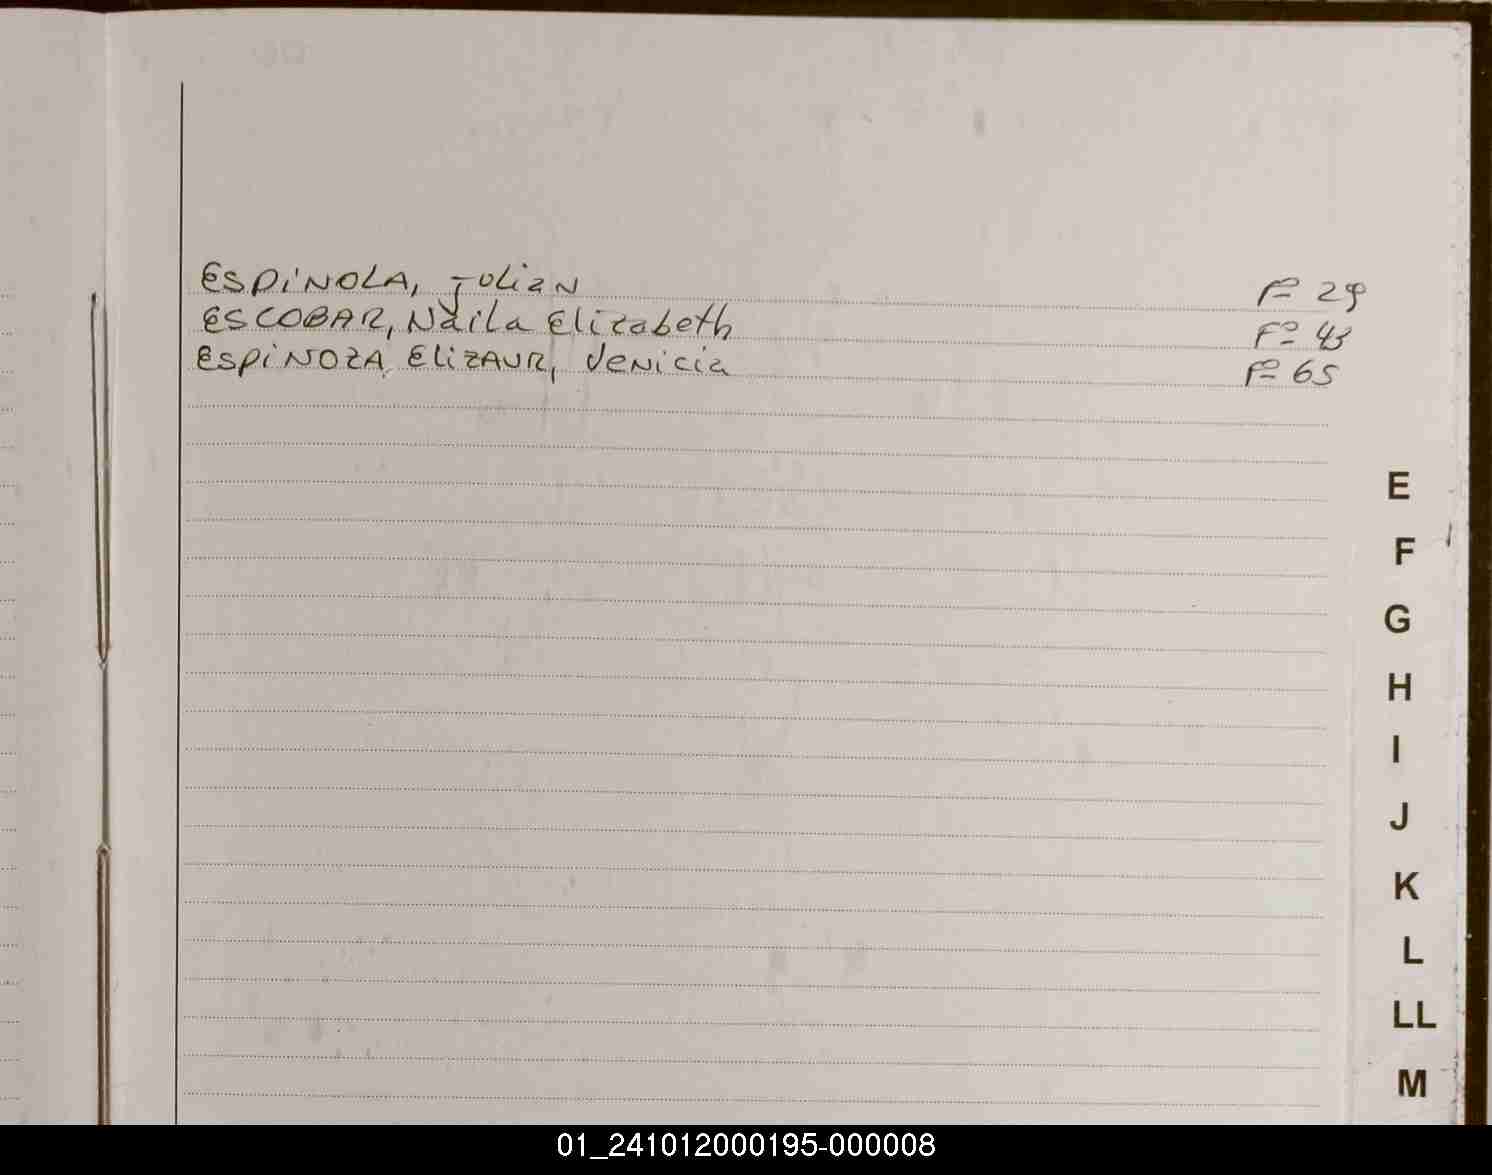 ESPINOLA, Julian Fº 29
ESCOBAR, Naila Elizabeth Fº 43
ESPINOZA ELIZAUR, Venicia Fº 65
E
F
G
H
I
J
K
L
LL
M
01_241012000195-000008